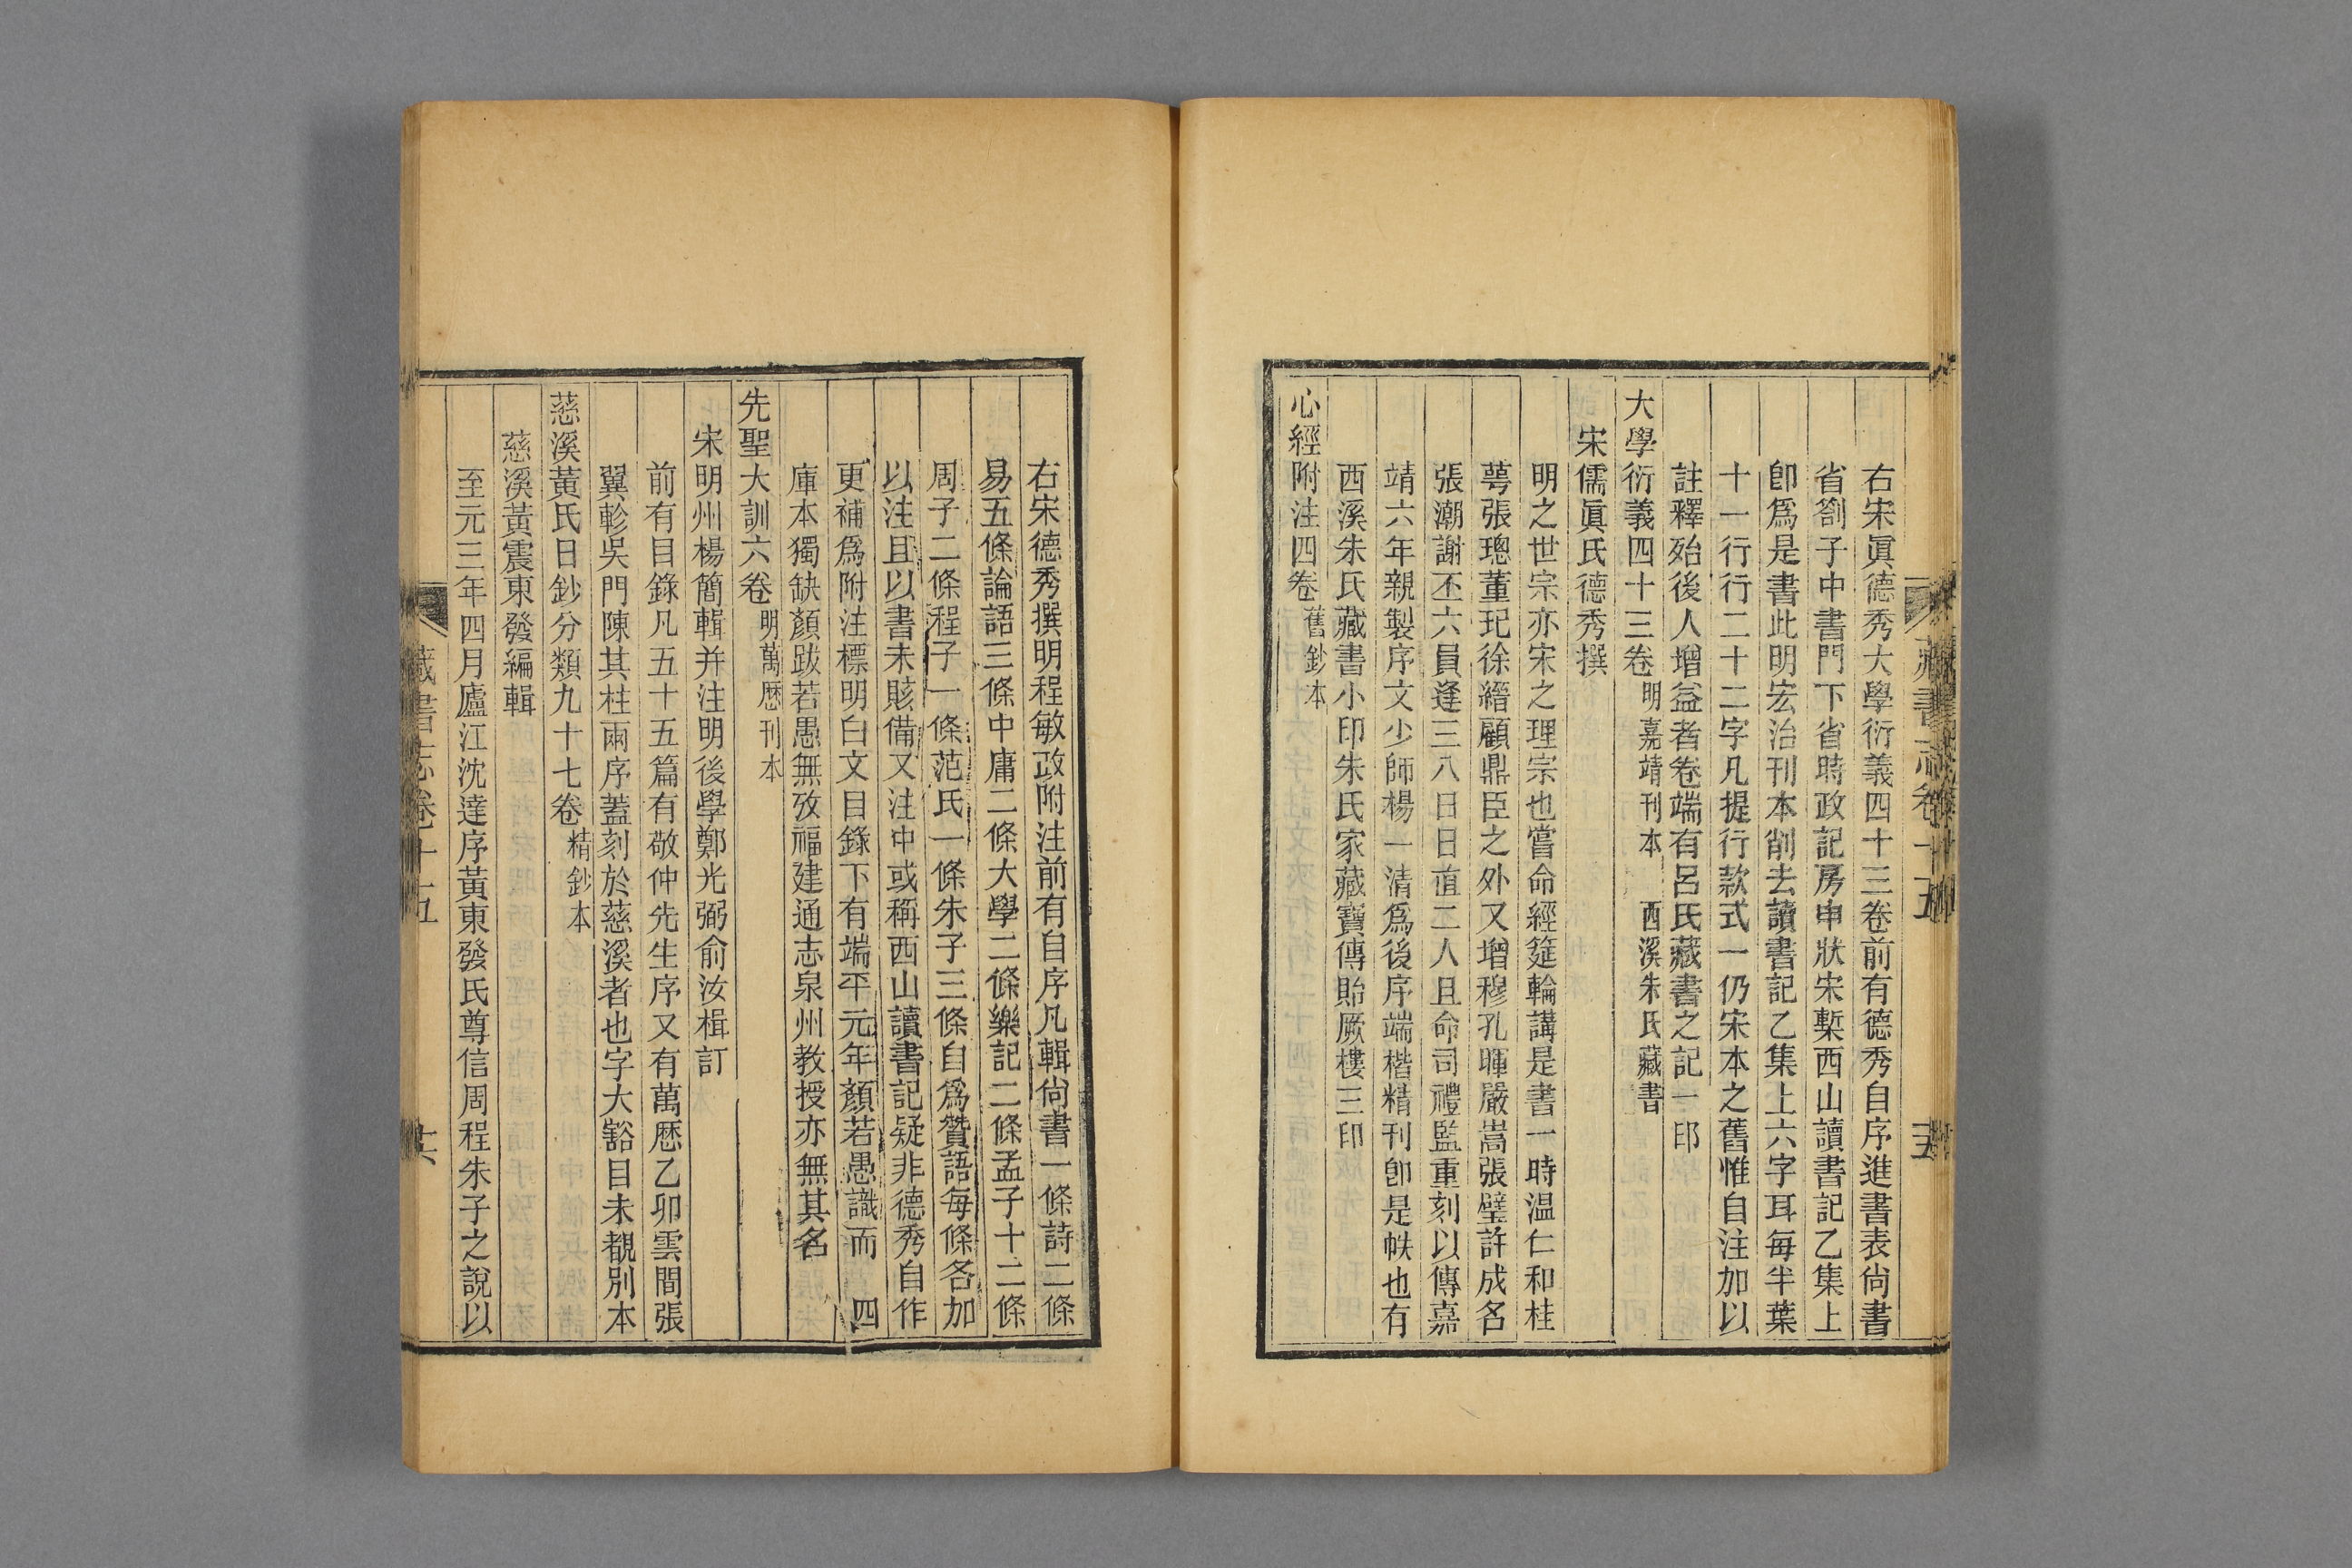 右宋眞德秀大學衍義四十三卷前有德秀自序進書表尙書
省劄子中書門下省時政記房申狀宋槧西山讀書記乙集上
卽爲是書此明宏治刊本削去讀書記乙集上六字耳每半葉
十一行行二十二字凡提行款式一仍宋本之舊惟自注加以
註釋殆後人增益者卷端有呂氏藏書之記一印
大學衍義四十三卷 明嘉靖刊本 西溪朱氏藏書
宋儒眞氏德秀撰
明之世宗亦宋之理宗也嘗命經筵輪講是書一時温仁和桂
萼張璁董玘徐縉顧鼎臣之外又增穆孔暉嚴嵩張璧許成名
張潮謝丕六員逢三八日日値二人且命司禮監重刻以傳嘉
靖六年親製序文少師楊一清爲後序端楷精刊卽是帙也有
西溪朱氏藏書小印朱氏家藏寶傳貽厥樓三印
心經附注四卷 舊鈔本
右宋德秀撰明程敏政附注前有自序凡輯尙書一條詩二條
易五條論語三條中庸二條大學二條樂記二條孟子十二條
周子二條程子一條范氏一條朱子三條自爲贊語每條各加
以注且以書未賅備又注中或稱西山讀書記疑非德秀自作
更補爲附注標明白文目錄下有端平元年顏若愚識而 四
庫本獨缺顏跋若愚無攷福建通志泉州教授亦無其名
先聖大訓六卷 明萬厯刊本
宋明州楊簡輯并注明後學鄭光弼俞汝楫訂
前有目錄凡五十五篇有敬仲先生序又有萬厯乙卯雲間張
翼軫吳門陳其柱兩序蓋刻於慈溪者也字大豁目未覩別本
慈溪黃氏日鈔分類九十七卷 精鈔本
慈溪黃震東發編輯
至元三年四月廬江沈逵序黃東發氏尊信周程朱子之說以
藏書志卷十五